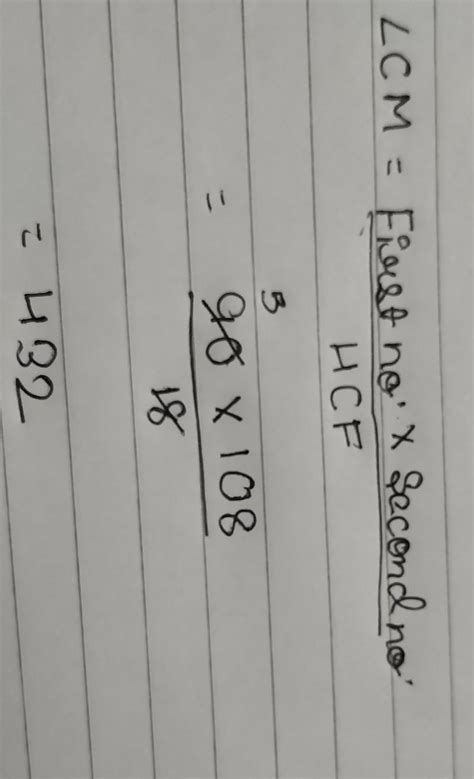 LCM = First no. × Second no.
HCF
= 5
90 × 108
18
= 432